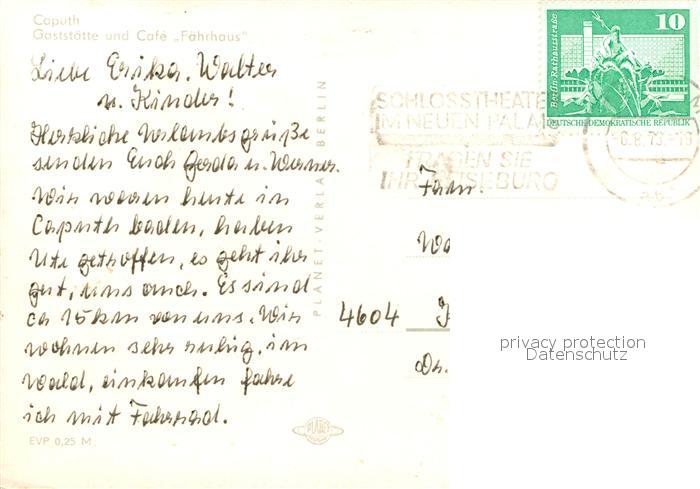 Caputh
Gaststätte und Café „Fährhaus"
Liebe Erika, Walter
u. Kinder!
Herzliche Urlaubsgrüße
senden Euch Gerda u. Werner.
Wir waren heute in
Caputh baden, haben
Ute getroffen, es geht ihr
gut, uns auch. Es sind
ca 15km von uns. Wir
wohnen sehr ruhig, im
Wald, einkaufen fahre
ich mit Fahrrad.
EVP 0,25 M
PLANET-VERLAG BERLIN
PLANET
10
Berlin-Rathausstraße
DEUTSCHE DEMOKRATISCHE REPUBLIK
SCHLOSSTHEATE
IM NEUEN PALAIS
FRAGEN SIE
IHR REISEBÜRO
Fam.
4604
privacy protection
Datenschutz